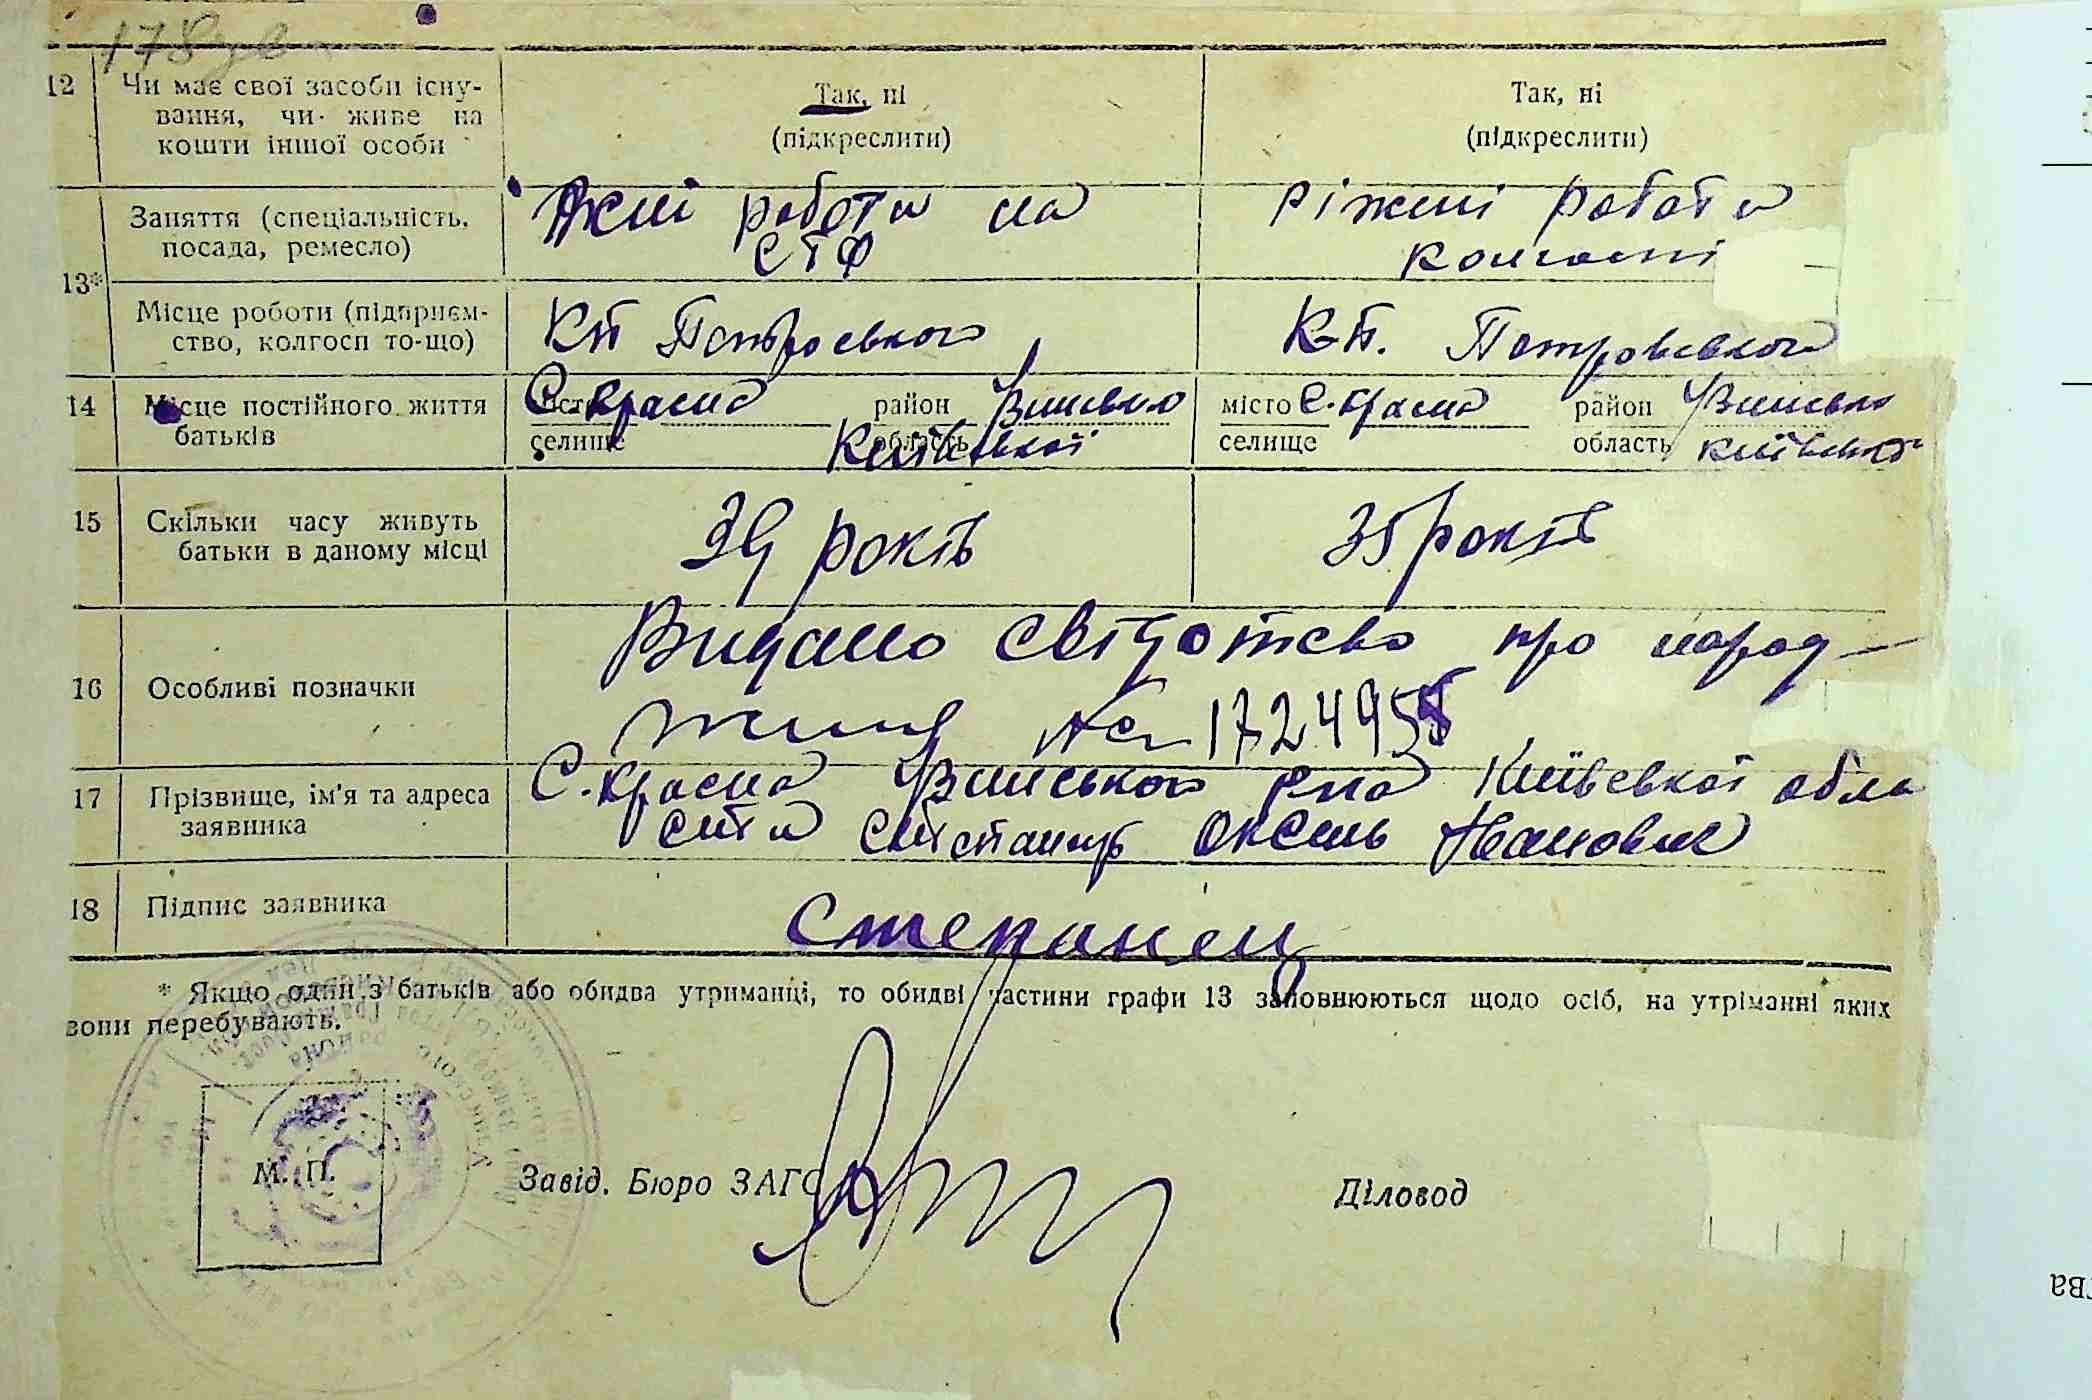 178
12 Чи має свої засоби існу-
вання, чи живе на
кошти іншої особи
Так, ні
(підкреслити)
Так, ні
(підкреслити)
13*
Заняття (спеціальність,
посада, ремесло)
роботи на
СТФ
ріжні роботи
колгоспі
Місце роботи (підприєм-
ство, колгосп то-що)
КП Петровського
К-П. Петровського
14 Місце постійного життя
батьків
С. Красна район
селище область Київської
місто С. Красна район
селище область Київської
15 Скільки часу живуть
батьки в даному місці
39 років
35 років
16 Особливі позначки
Видано свідотство про народ-
ження № 1724955
17 Прізвище, ім'я та адреса
заявника
С. Красна р-на Київської обла
сти Оксень Іванович
18 Підпис заявника
Степанец
* Якщо один з батьків або обидва утриманці, то обидві частини графи 13 заповнюються щодо осіб, на утріманні яких
вони перебувають.
М. П.
Завід. Бюро ЗАГС
Діловод